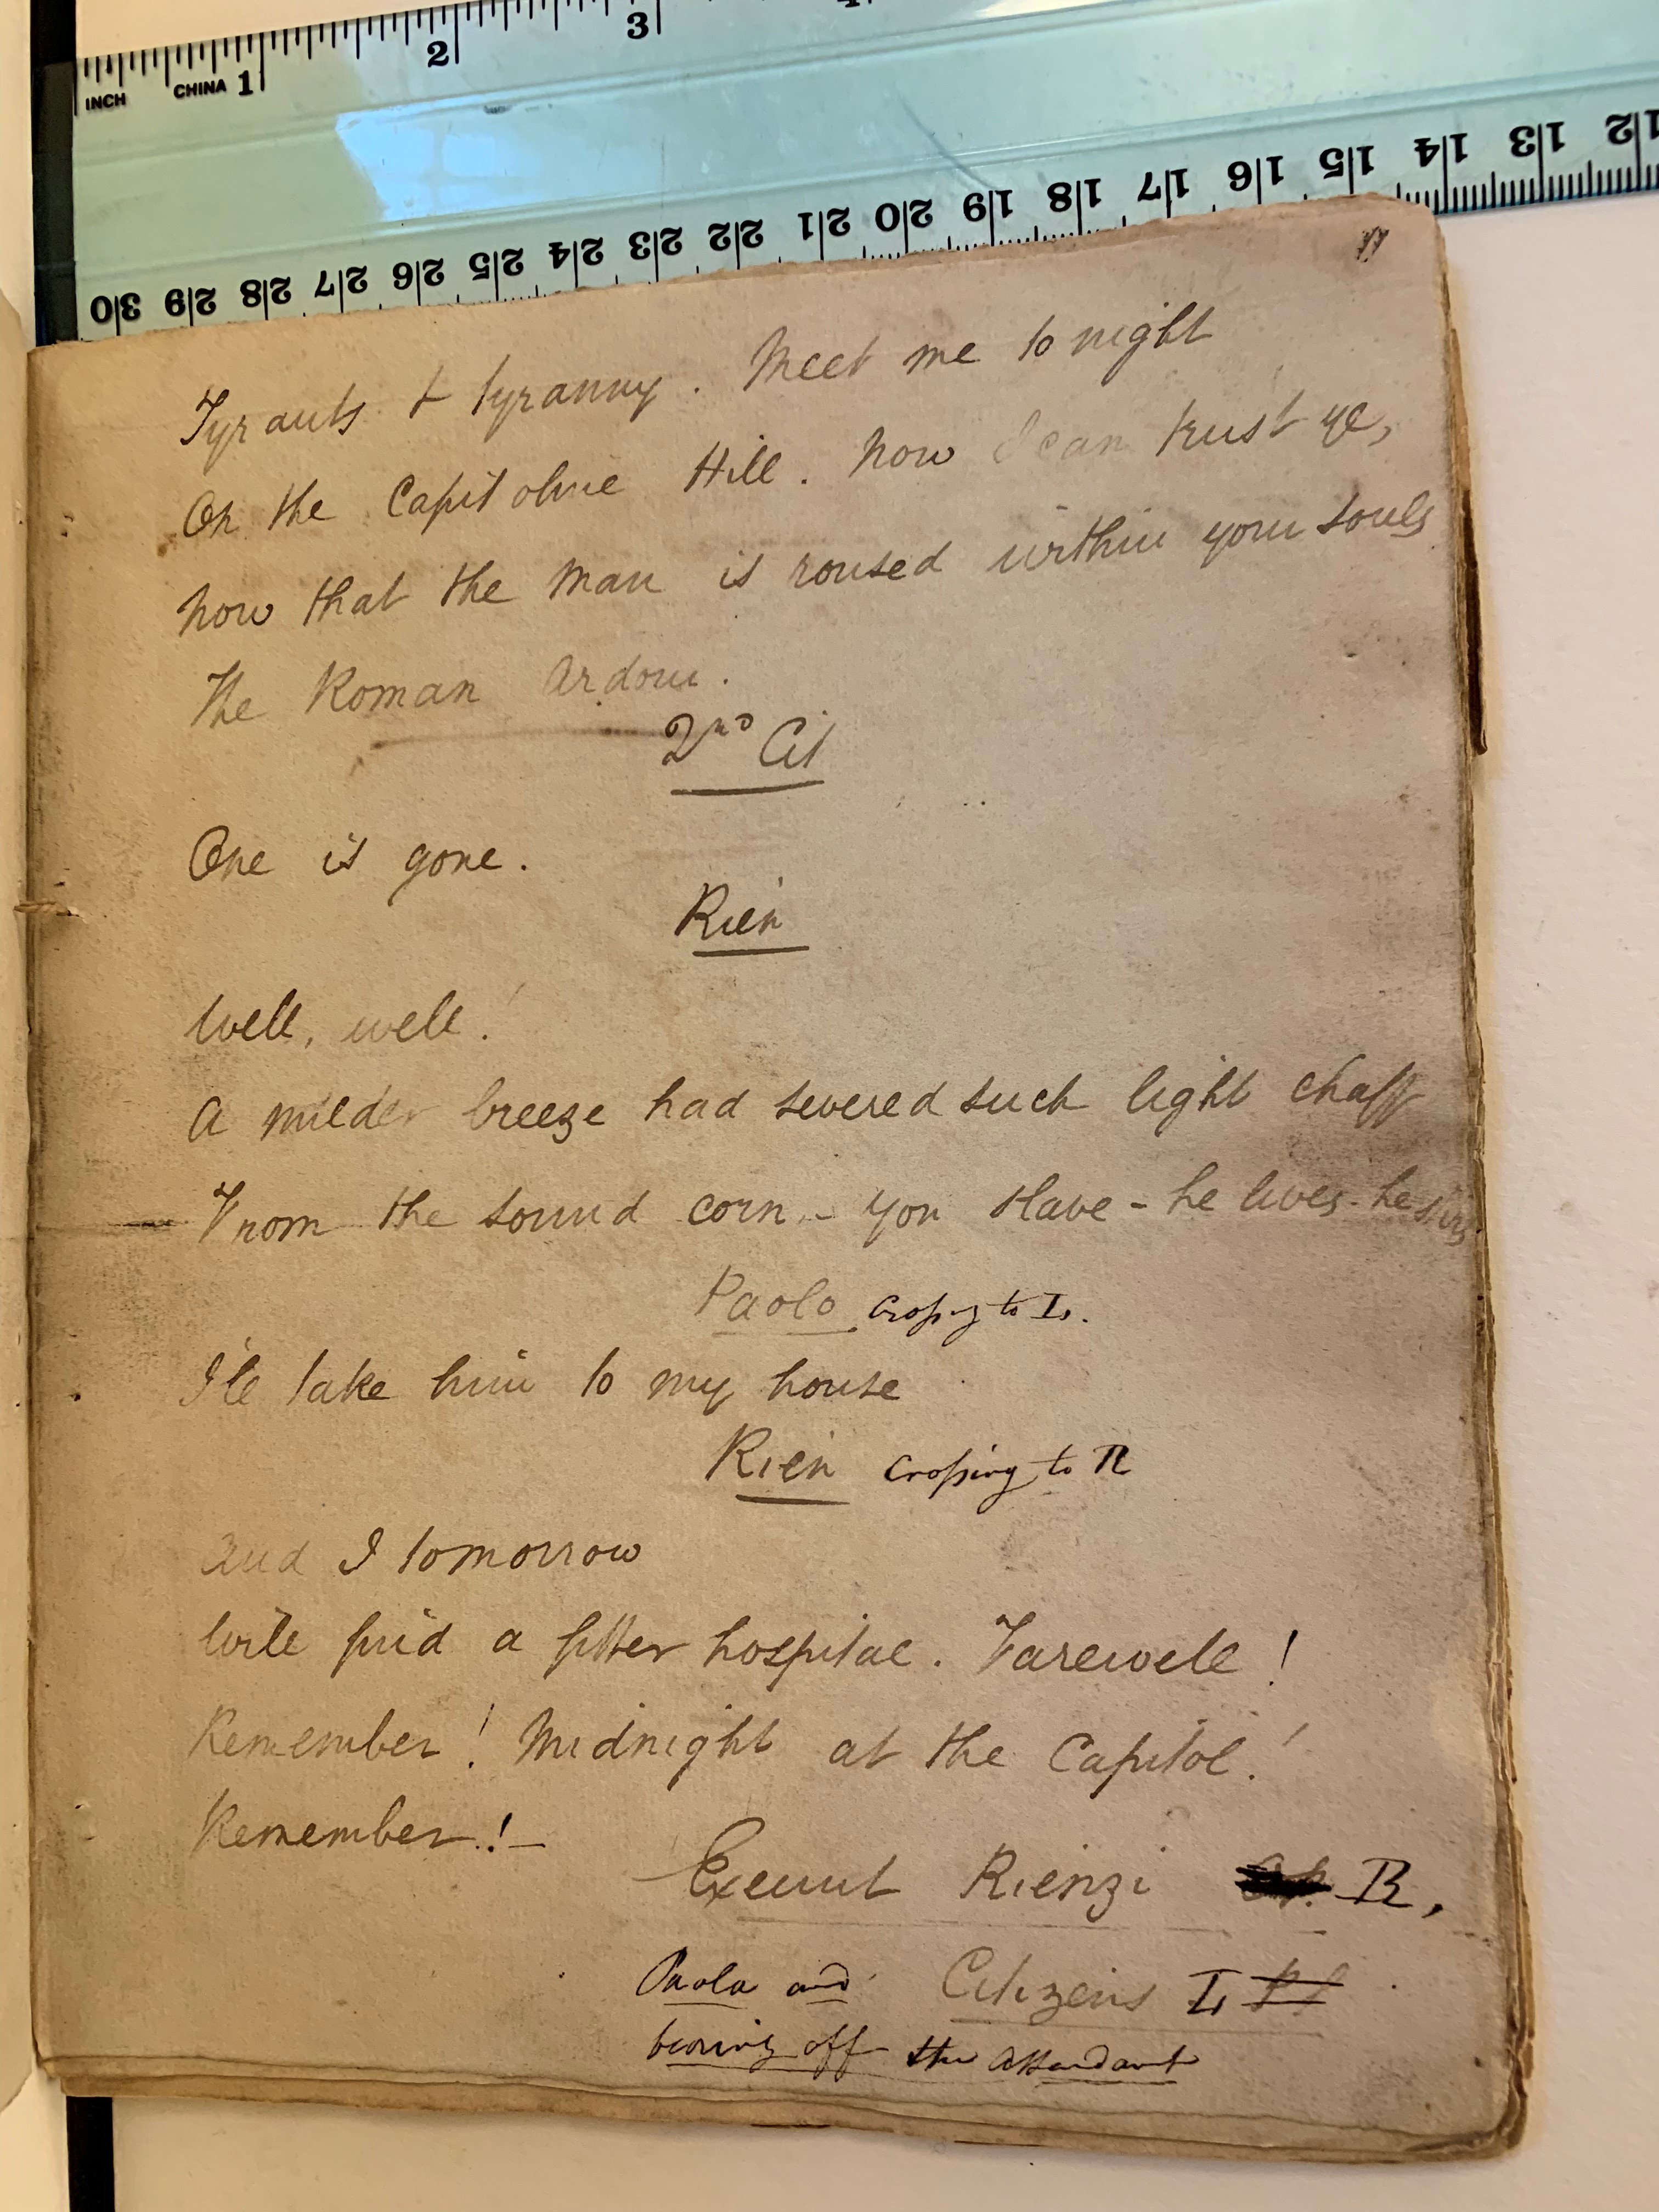 INCH CHINA 1 2 3
30 29 28 27 26 25 24 23 22 21 20 19 18 17 16 15 14 13 12
Tyrants & tyranny. Meet me to night
On the Capitoline Hill. Now I can trust ye,
Now that the Man is roused within your souls
The Roman Ardour.
2nd Cit
One is gone.
Rien
Well, well!
A milder breeze had severed such light chaff
From the sound corn - You Slave - he lives - he
Paolo Crossing to L.
I'll take him to my house
Rien Crossing to R
And I tomorrow
Will find a fitter hospital. Farewell!
Remember! Midnight at the Capitol!
Remember!-
Exeunt Rienzi R,
Paolo and Citizens L
bearing off the Attendant